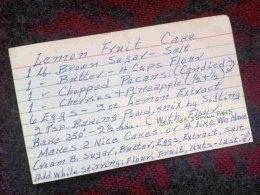 Lemon Fruit Cake
1 lb Brown Sugar - Salt
1 " Butter - 4 Cups Flour
1 " Chopped Pecans. (Candied)
1 " Cherries + Pineapple (½ + ½)
6 Eggs - 2 oz Lemon Extract
2 tsp. Baking Powd, mix by Sifting
Bake 250° - 2½ hrs. (With
Makes 2 Nice Cakes or 4 like We Made
Cream B. Sugar, Butter, Eggs, Extract, salt.
Add While stirring, Flour, Fruit, Nuts - last